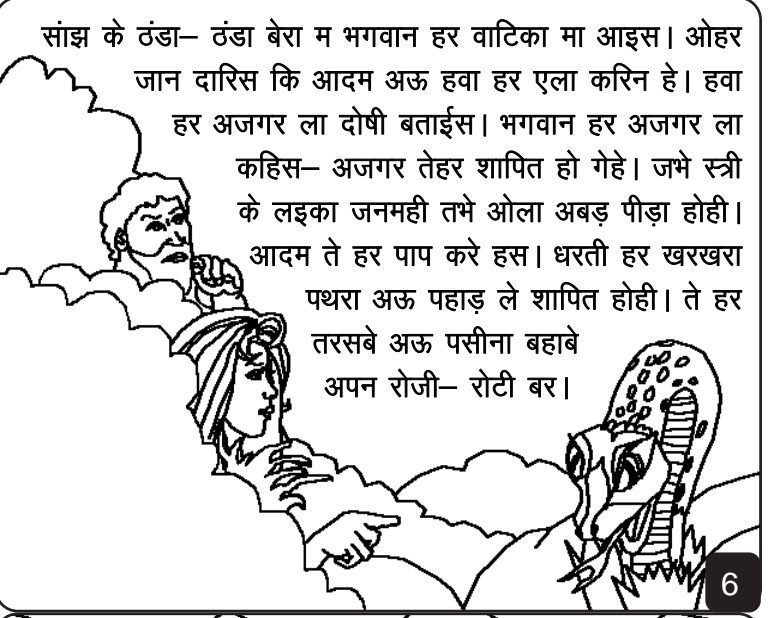 सांझ के ठंडा– ठंडा बेरा म भगवान हर वाटिका मा आइस। ओहर
जान दारिस कि आदम अऊ हवा हर एला करिन हे। हवा
हर अजगर ला दोषी बताईस। भगवान हर अजगर ला
कहिस– अजगर तेहर शापित हो गेहे। जभे स्त्री
के लइका जनमही तभे ओला अबड़ पीड़ा होही।
आदम ते हर पाप करे हस। धरती हर खरखरा
पथरा अऊ पहाड़ ले शापित होही। ते हर
तरसबे अऊ पसीना बहाबे
अपन रोजी– रोटी बर।
6